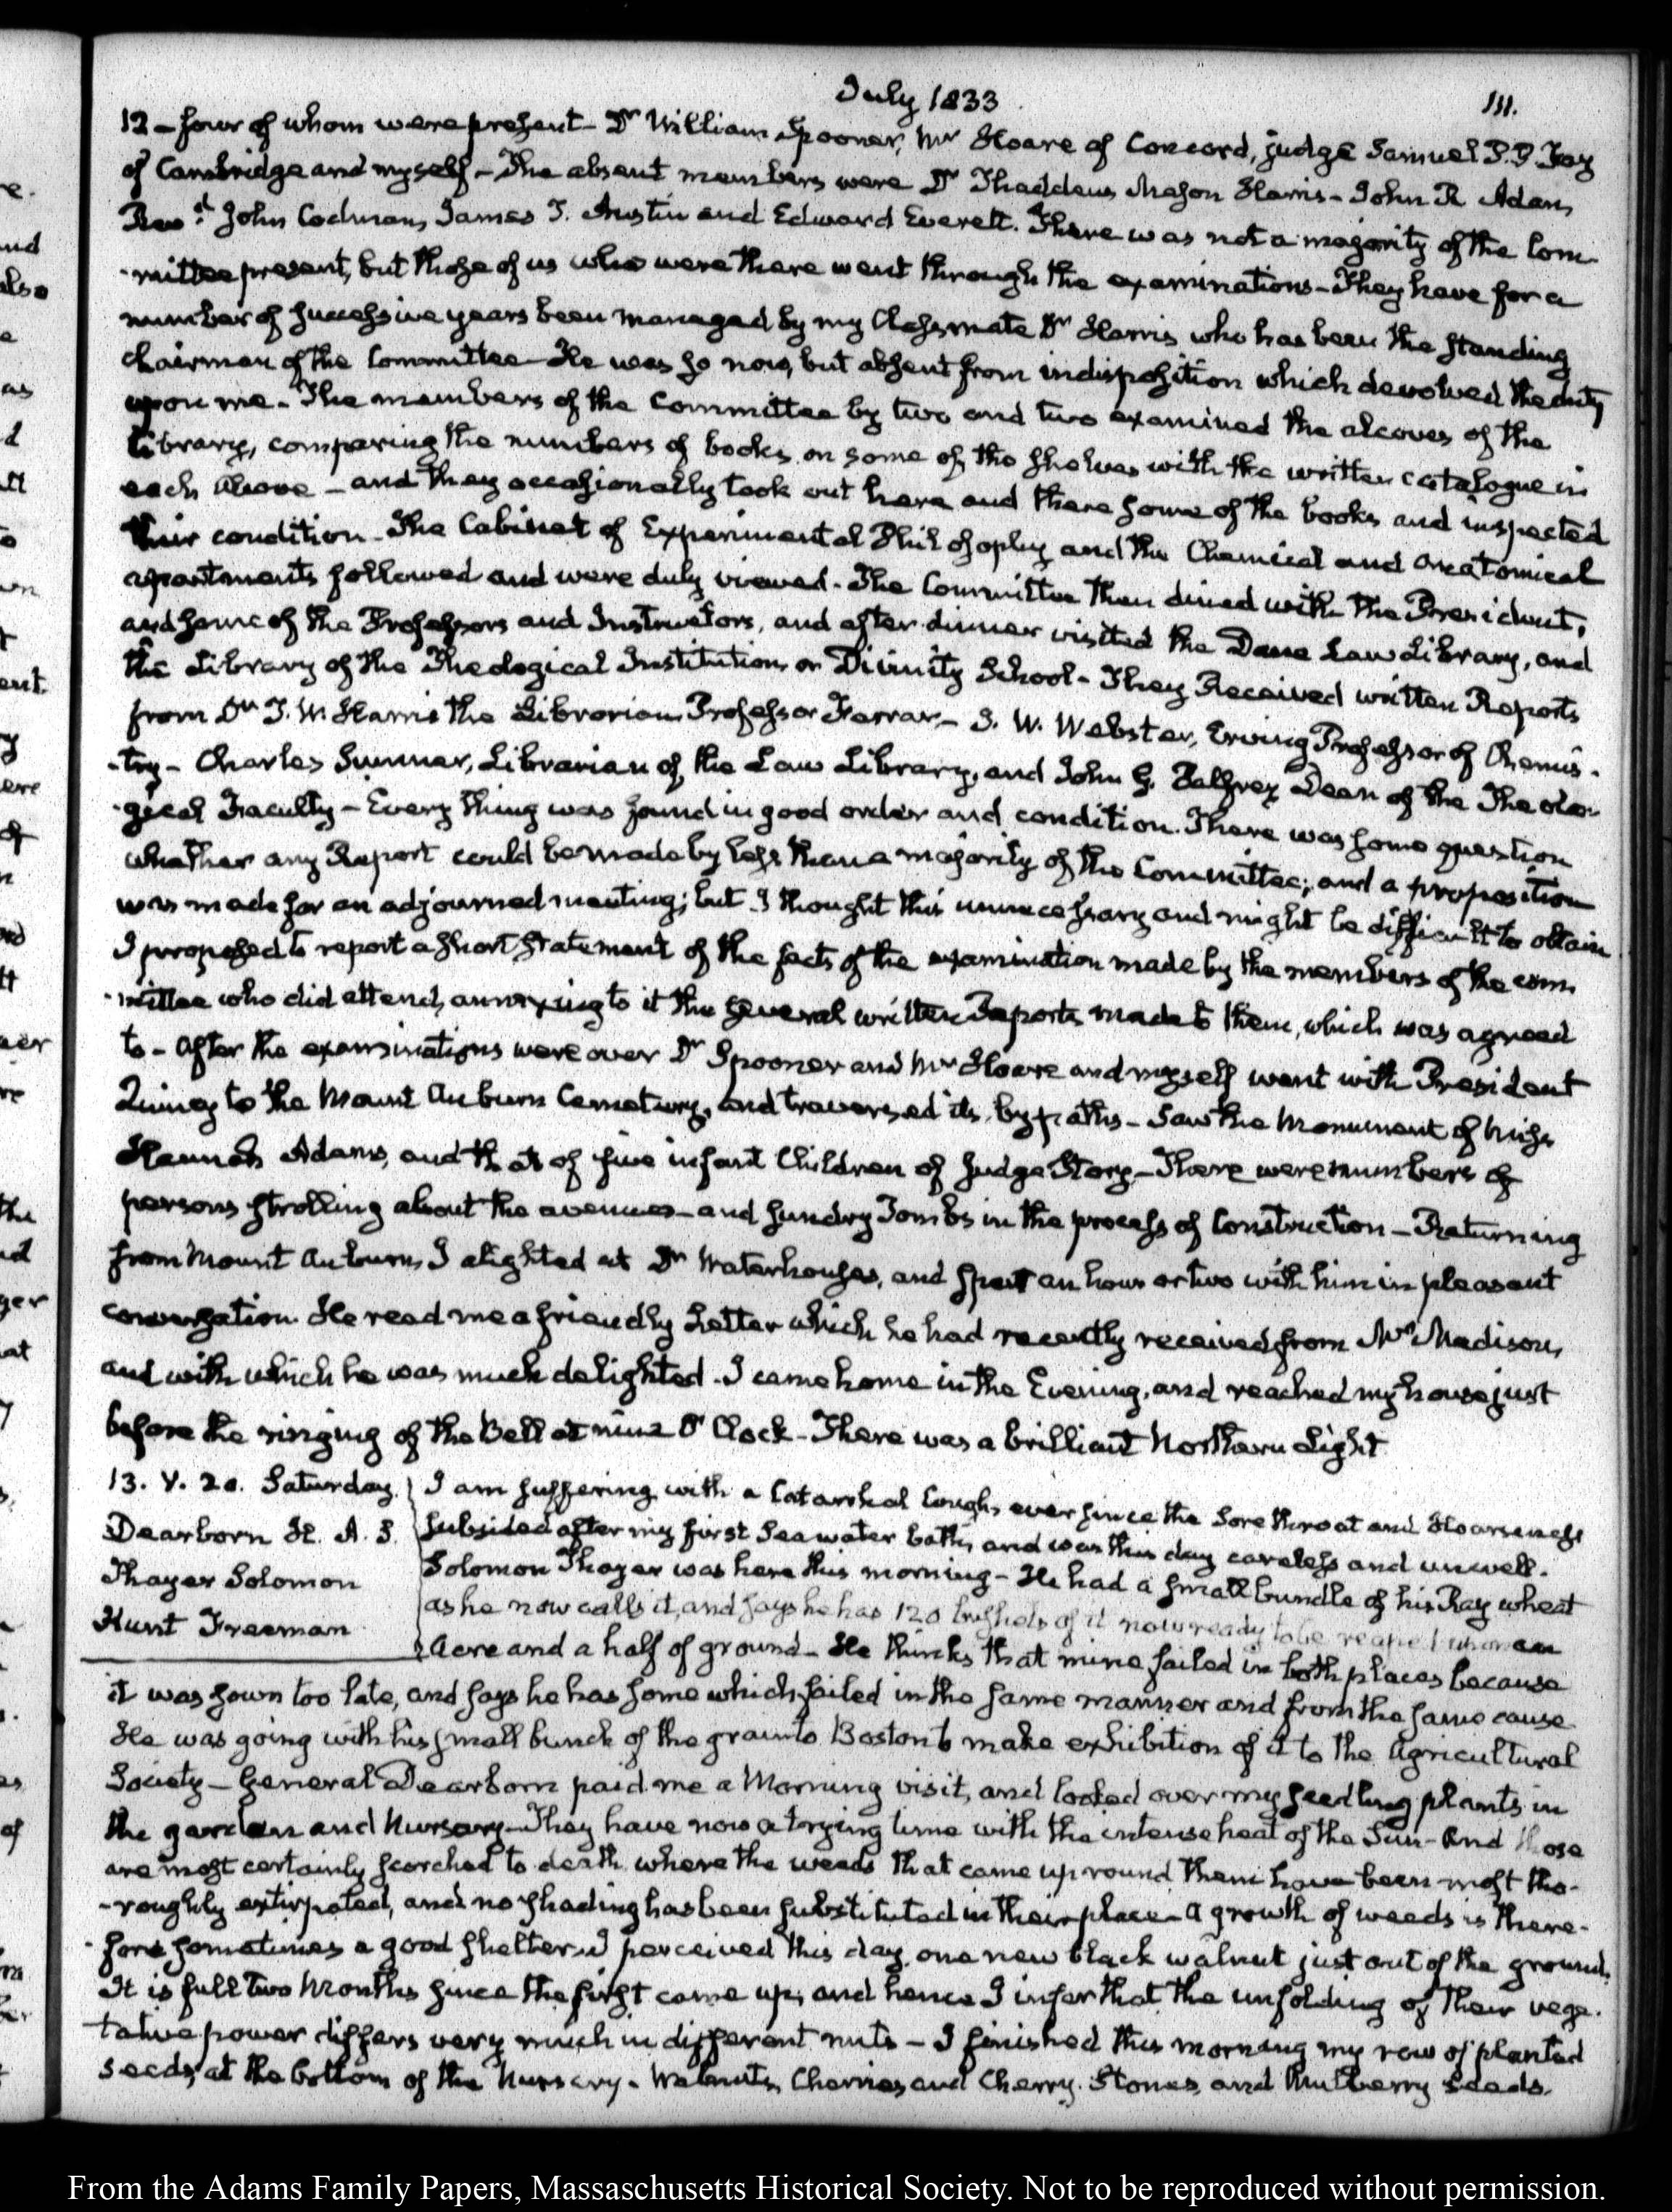 July 1833
111.
12 – four of whom were present – Dr William Spooner, Mr Hoare of Concord, judge Samuel P. P. Fay
of Cambridge and myself – The absent members were Dr Thaddeus Mason Harris – John R Adan,
Revd. John Codman, James T. Austin and Edward Everett. There was not a majority of the Com-
-mittee present, but those of us who were there went through the examinations – They have for a
number of successive years been managed by my Classmate Dr Harris who has been the standing
Chairman of the Committee – He was so now, but absent from indisposition which devolved the duty
upon me – The members of the Committee by two and two examined the alcoves of the
Library, comparing the numbers of books on some of the shelves with the written catalogue in
each alcove – and they occasionally took out here and there some of the books and inspected
their condition – The Cabinet of Experimental Philosophy and the Chemical and Anatomical
apartments followed and were duly viewed – The Committee then dined with the President,
and some of the Professors and Instructors, and after dinner visited the Dane Law Library, and
the Library of the Theological Institution, or Divinity School – They Received written Reports
from Dr T. W. Harris the Librarian Professor Farrar – J. W. Webster, Erving Professor of Chemis-
-try – Charles Sumner, Librarian of the Law Library, and John G. Palfrey Dean of the Theolo-
-gical Faculty – Every thing was found in good order and condition. There was some question
whether any Report could be made by less than a majority of the Committee; and a proposition
was made for an adjourned meeting; but I thought this unnecessary and might be difficult to obtain
I proposed to report a short statement of the facts of the examination made by the members of the com-
-mittee who did attend, annexing to it the several written Reports made to them, which was agreed
to – After the examinations were over Dr Spooner and Mr Hoare and myself went with President
Quincy to the Mount Auburn Cemetery, and traversed its by paths – Saw the Monument of Miss
Hannah Adams, and that of five infant Children of Judge Story – There were numbers of
persons strolling about the avenues – and sundry Tombs in the process of Construction – Returning
from Mount Auburn, I alighted at Dr Waterhouse's, and spent an hour or two with him in pleasant
conversation. He read me a friendly Letter which he had recently received from Mr Madison,
and with which he was much delighted – I came home in the Evening, and reached my house just
before the ringing of the Bell at nine O' Clock – There was a brilliant Northern Light
13. V. 20. Saturday.
Dearborn H. A. S.
Thayer Solomon
Hunt Freeman
I am suffering with a Catarrhal Cough, ever since the Sore throat and Hoarseness
subsided after my first Sea water bath, and was this day careless and unwell.
Solomon Thayer was here this morning – He had a small bundle of his Ray wheat
as he now calls it, and says he has 120 bushels of it now ready to be reaped upon an
Acre and a half of ground – He thinks that mine failed in both places because
it was sown too late, and says he has some which failed in the same manner and from the same cause.
He was going with his small bunch of the grain to Boston to make exhibition of it to the Agricultural
Society – General Dearborn paid me a Morning visit, and looked over my seedling plants in
the garden and Nursery – They have now a trying time with the intense heat of the Sun – And those
are most certainly scorched to death where the weeds that came up round them have been most tho-
-roughly extirpated, and no shading has been substituted in their place – A growth of weeds is there-
-fore sometimes a good shelter. I perceived this day one new black walnut just out of the ground.
It is full two Months since the first came up, and hence I infer that the unfolding of their vege-
-tative power differs very much in different nuts – I finished this morning my row of planted
seeds, at the bottom of the Nursery – Walnuts, Cherries, and Cherry Stones, and Mulberry Seeds.
From the Adams Family Papers, Massachusetts Historical Society. Not to be reproduced without permission.